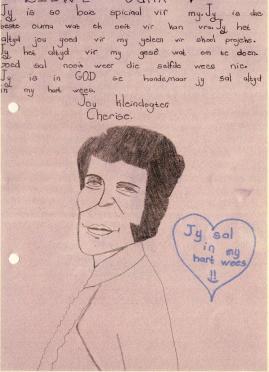 Jy is so baie spicinal vir my. Jy is die
beste ouma wat ek ooit vir kan vra. Jy het
altyd jou goed vir my geleen vir skool projekte.
Jy het altyd vir my gesê wat om te doen.
goed sal nooit weer die selfde wees nie.
Jy is in GOD se hande, maar jy sal altyd
in my hart wees.
Jou kleindogter
Cherise.
Jy sal
in my
hart wees